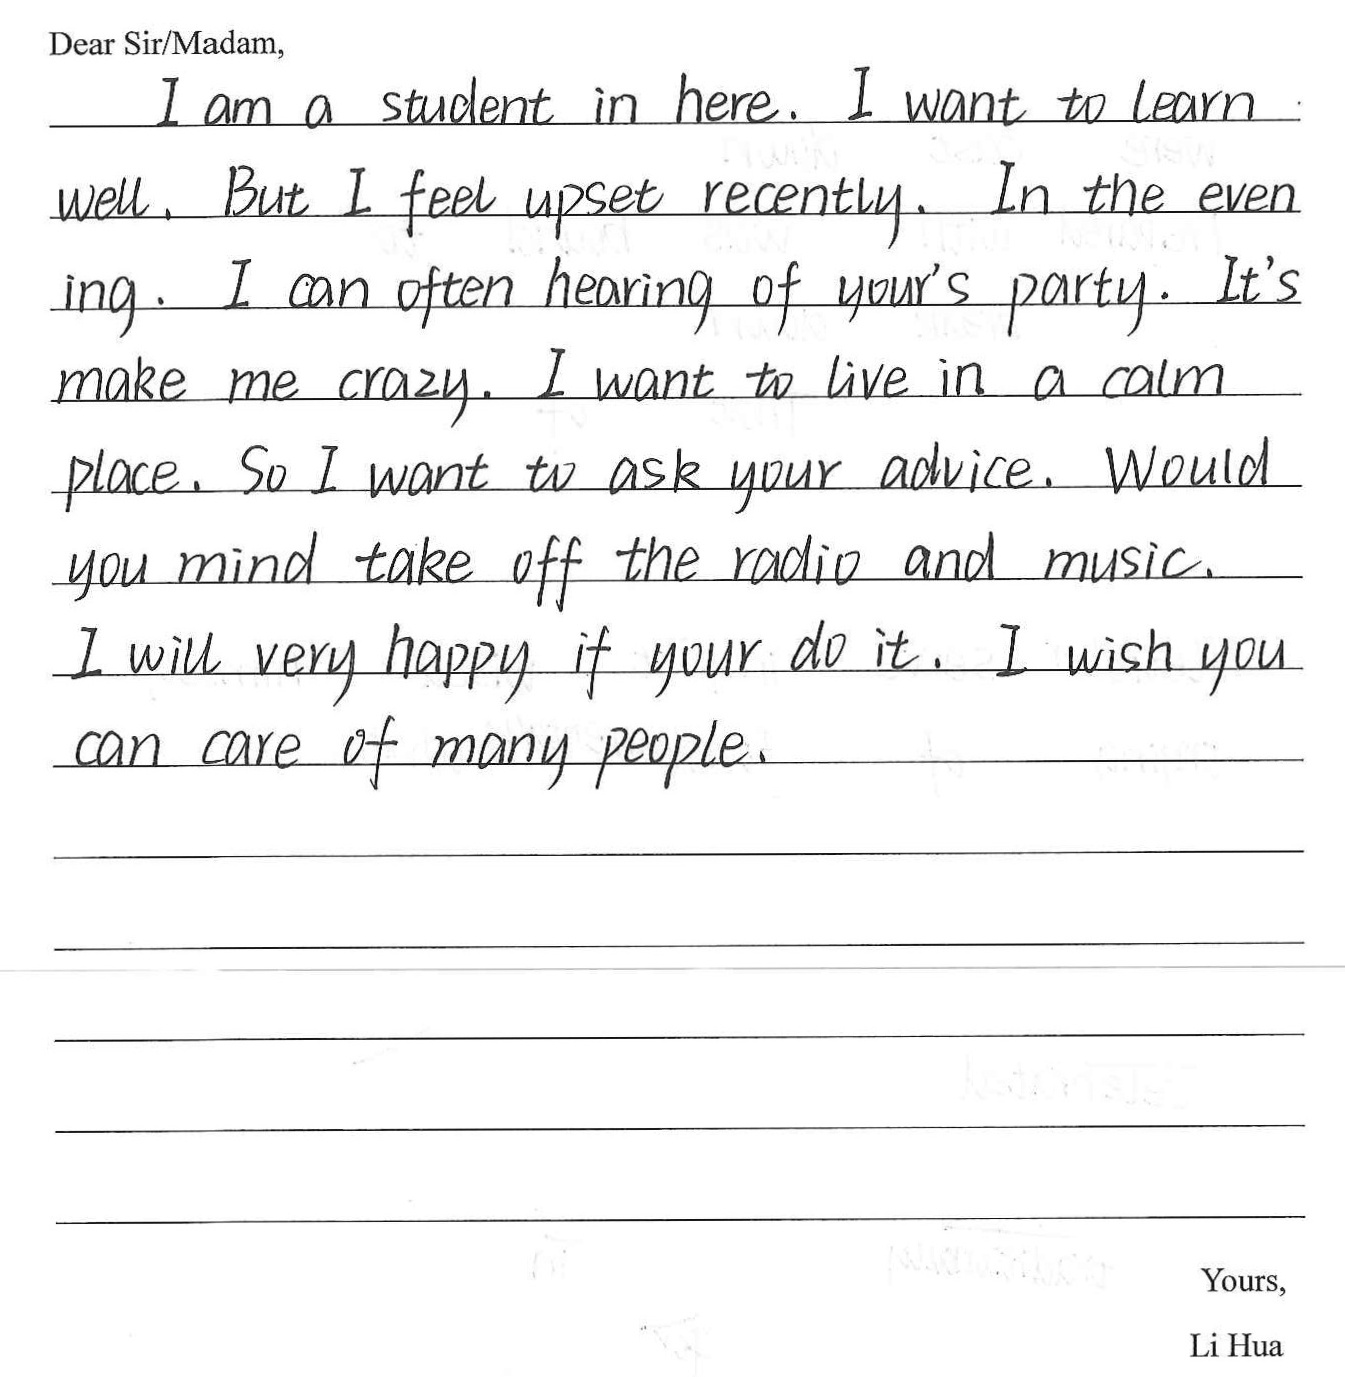 Dear Sir/Madam,
I am a student in here. I want to learn
well. But I feel upset recently. In the even
ing. I can often hearing of your's party. It's
make me crazy. I want to live in a calm
place. So I want to ask your advice. Would
you mind take off the radio and music.
I will very happy if your do it. I wish you
can care of many people.
Yours,
Li Hua